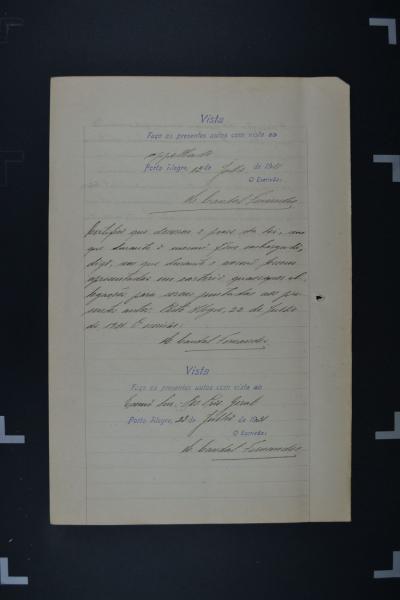 Vista
Faço os presentes autos com vista ao
appellado
Porto Alegre, 12 de Julho de 1921
O Escrivão:
Candal Fernandes
Certifico que decorreu o prazo da lei, sem
que durante o mesmo fosse embargado,
digo, sem que durante o mesmo fossem
apresentadas em cartorio quaesquer al-
legações para serem juntadas aos pre-
sentes autos. Porto Alegre, 22 de Julho
de 1921. O escrivão:
Candal Fernandes
Vista
Faço os presentes autos com vista ao
Exmo Snr. Geral
Porto Alegre, 22 de Julho de 1921
O Escrivão:
Candal Fernandes